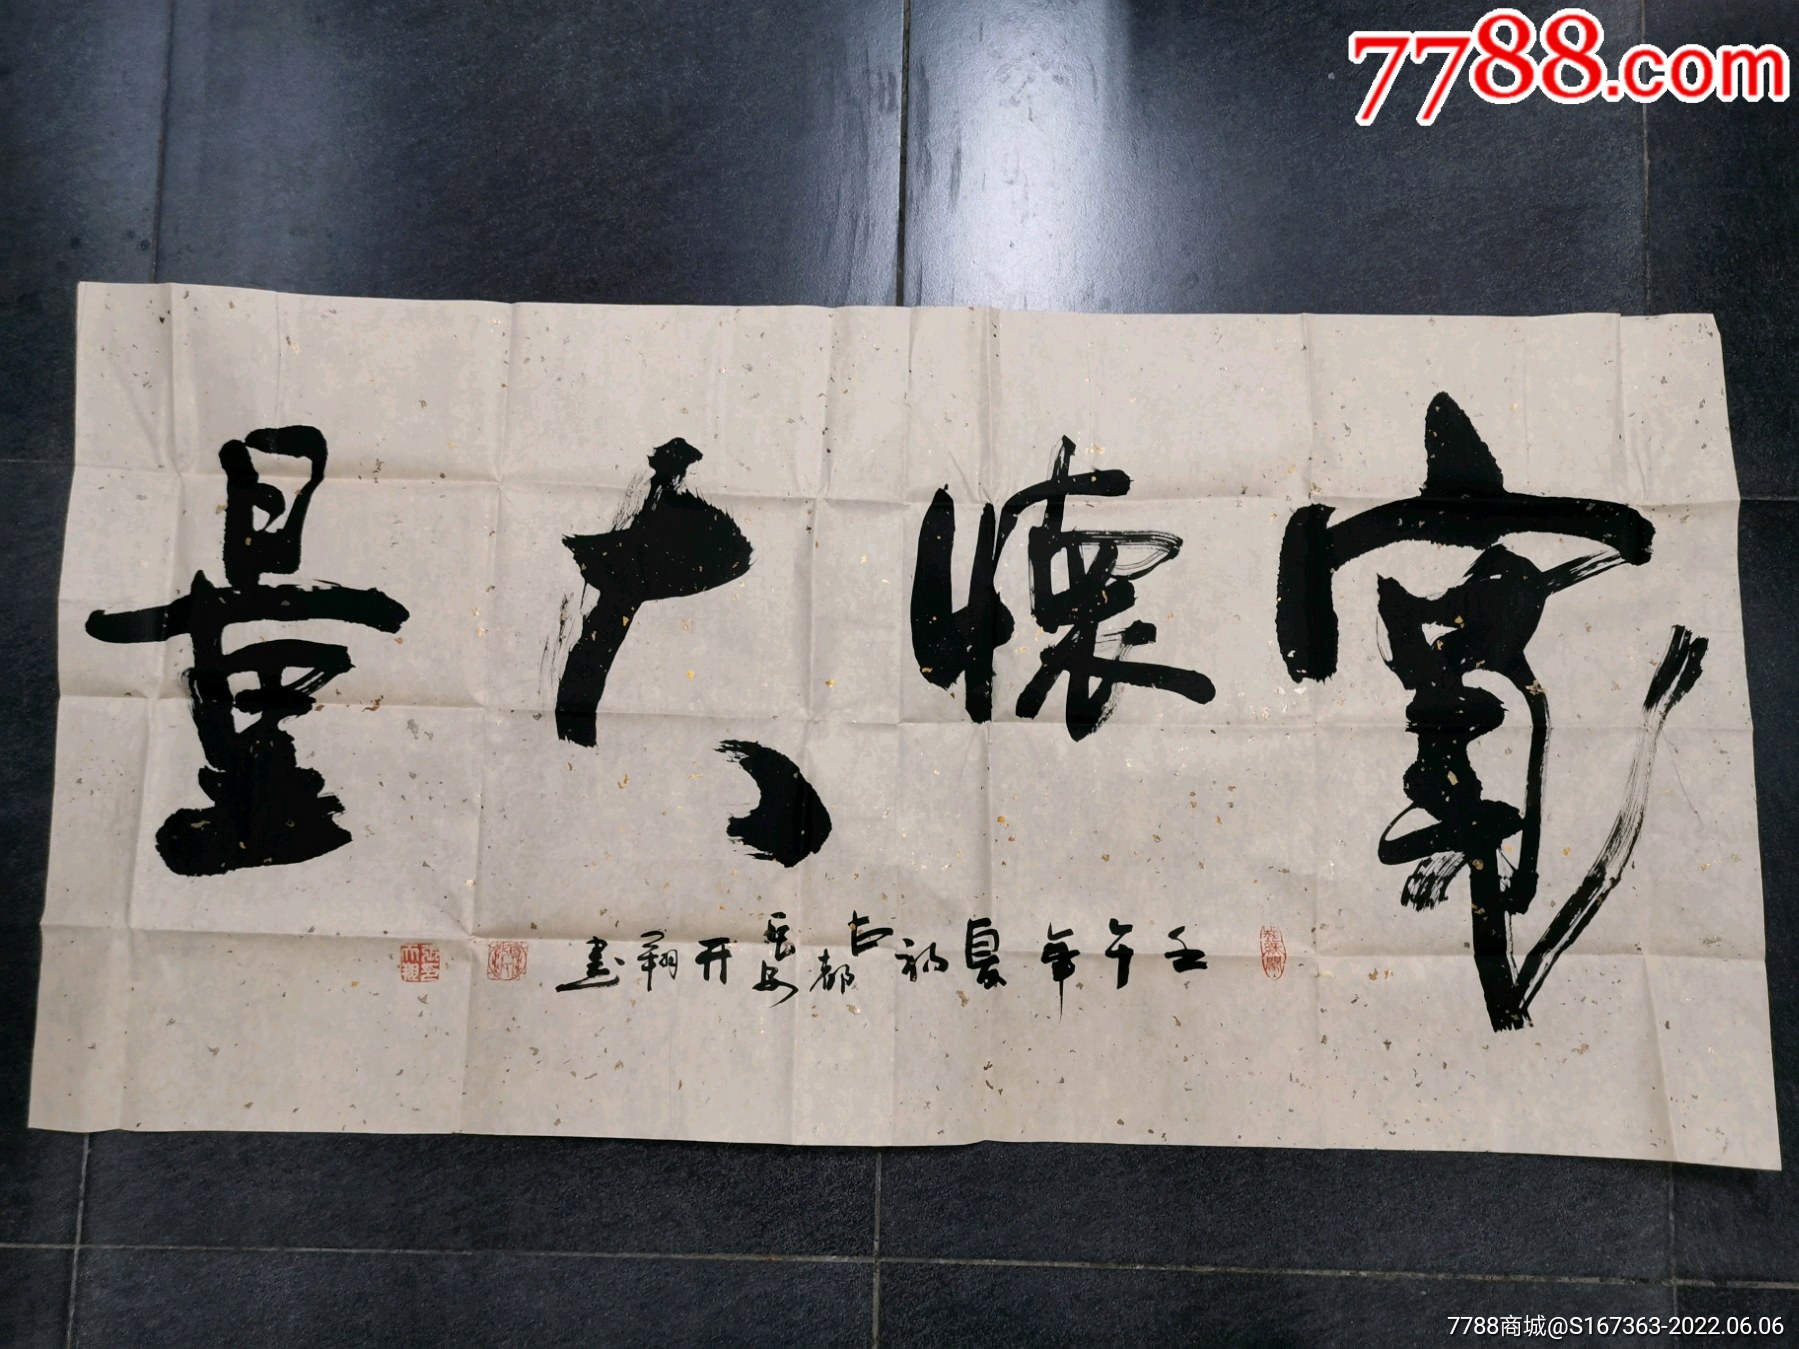 7788.com
寬懷大量
壬午年夏初古都長安開翔書
7788商城@S167363-2022.06.06